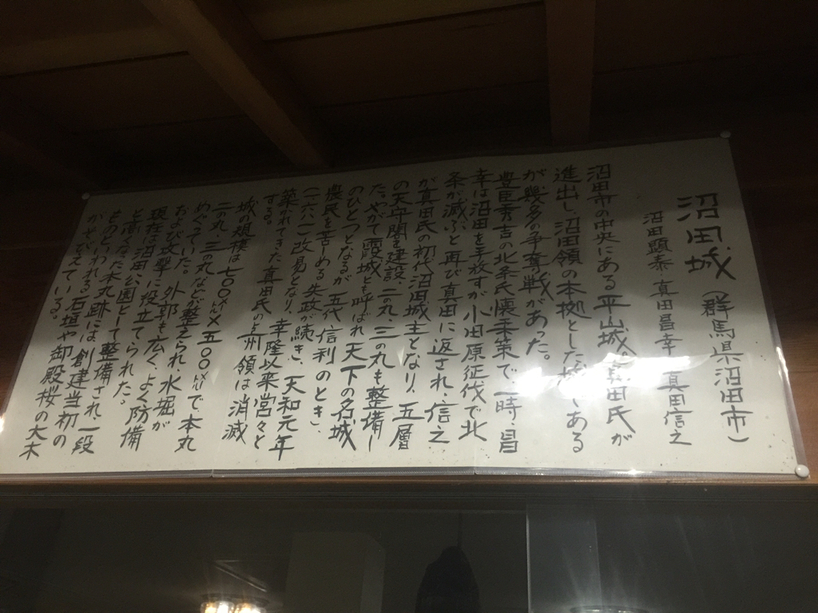 沼田城(群馬県沼田市)
沼田顕泰・真田昌幸・真田信之
沼田市の中央にある平山城。真田氏が
進出し沼田領の本拠とした城である
が幾多の争奪戦があった。
豊臣秀吉の北条氏懐柔策で、一時、昌
幸は沼田を手放すが小田原征伐で北
条が滅ぶと再び真田に返され、信之
が真田氏の初代沼田城主となり、五層
の天守閣を建設、二の丸、三の丸も整備し
た。やがて霞城とも呼ばれ天下の名城
のひとつとなるが五代信利のとき、
農民を苦しめる失政が続き、天和元年
(一六八一)改易となり、幸隆以来営々と
築かれてきた真田氏の上州領は消滅
する。
城の規模は七〇〇㍍×五〇〇㍍で、本丸
二の丸、三の丸などが整えられ、水堀が
めぐっていた。外郭も広く、よく防備
および攻撃に役立てられた。
現在は沼田公園として整備され、一段
と高くなった本丸跡には創建当初の
ものといわれる石垣や御殿桜の大木
がそびえている。